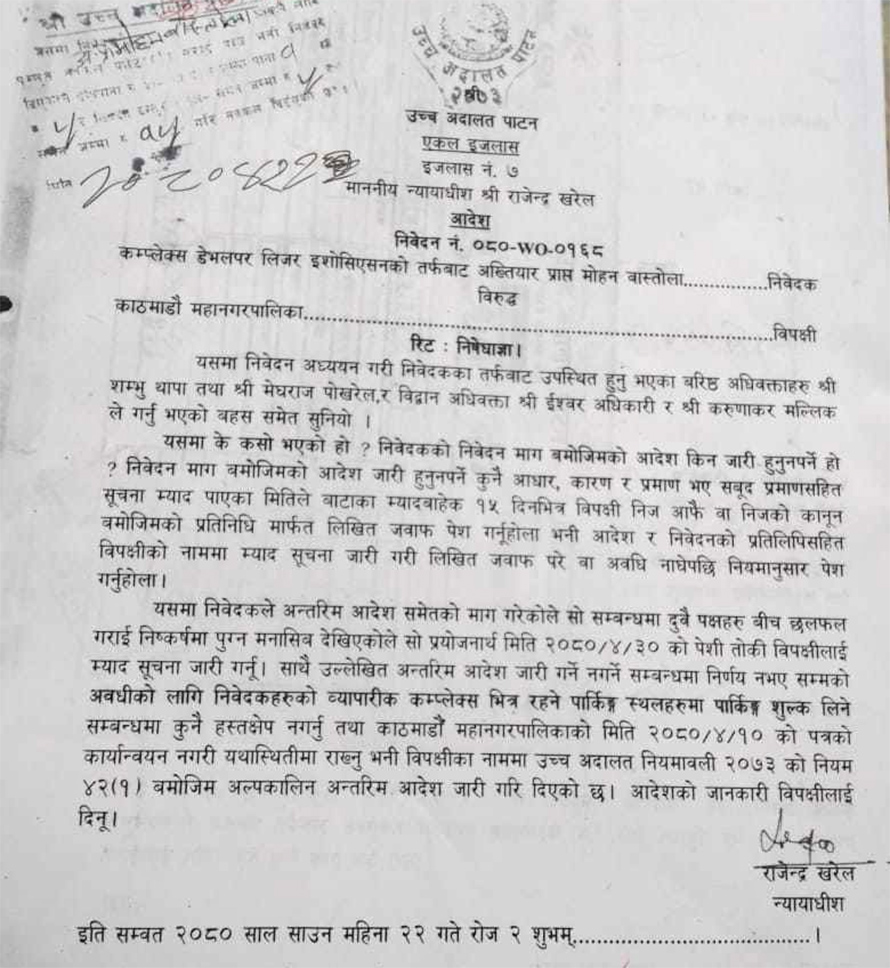 श्री उच्च अदालत
उच्च अदालत पाटन
२०७३
उच्च अदालत पाटन
एकल इजलास
इजलास नं. ७
माननीय न्यायाधीश श्री राजेन्द्र खरेल
आदेश
निवेदन नं. ०८०-WO-०१६८
कम्प्लेक्स डेभलपर लिजर इशोसिएसनको तर्फबाट अख्तियार प्राप्त मोहन बास्तोला...............निवेदक
विरुद्ध
काठमाडौ महानगरपालिका...............................................................................विपक्षी
रिट : निषेधाज्ञा।
यसमा निवेदन अध्ययन गरी निवेदकका तर्फबाट उपस्थित हुनु भएका बरिष्ठ अधिवक्ताहरु श्री
शम्भु थापा तथा श्री मेघराज पोखरेल,र विद्वान अधिवक्ता श्री ईश्वर अधिकारी र श्री करुणाकर मल्लिक
ले गर्नु भएको बहस समेत सुनियो ।
यसमा के कसो भएको हो ? निवेदकको निवेदन माग बमोजिमको आदेश किन जारी हुनुनपर्ने हो
? निवेदन माग बमोजिमको आदेश जारी हुनुनपर्ने कुनै आधार, कारण र प्रमाण भए सबूद प्रमाणसहित
सूचना म्याद पाएका मितिले बाटाका म्यादबाहेक १५ दिनभित्र विपक्षी निज आफै वा निजको कानून
बमोजिमको प्रतिनिधि मार्फत लिखित जवाफ पेश गर्नूहोला भनी आदेश र निवेदनको प्रतिलिपिसहित
विपक्षीको नाममा म्याद सूचना जारी गरी लिखित जवाफ परे वा अवधि नाघेपछि नियमानुसार पेश
गर्नुहोला।
यसमा निवेदकले अन्तरिम आदेश समेतको माग गरेकोले सो सम्बन्धमा दुवै पक्षहरु बीच छलफल
गराई निष्कर्षमा पुग्न मनासिव देखिएकोले सो प्रयोजनार्थ मिति २०८०/४/३० को पेशी तोकी विपक्षीलाई
म्याद सूचना जारी गर्नू। साथै उल्लेखित अन्तरिम आदेश जारी गर्ने नगर्ने सम्बन्धमा निर्णय नभए सम्मको
अवधीको लागि निवेदकहरुको व्यापारीक कम्प्लेक्स भित्र रहने पार्किङ्ग स्थलहरुमा पार्किङ्ग शुल्क लिने
सम्बन्धमा कुनै हस्तक्षेप नगर्नु तथा काठमाडौं महानगरपालिकाको मिति २०८०/४/१० को पत्रको
कार्यान्वयन नगरी यथास्थितीमा राख्नु भनी विपक्षीका नाममा उच्च अदालत नियमावली २०७३ को नियम
४२(१) बमोजिम अल्पकालिन अन्तरिम आदेश जारी गरि दिएको छ। आदेशको जानकारी विपक्षीलाई
दिनू।
राजेन्द्र खरेल
न्यायाधीश
इति सम्वत २०८० साल साउन महिना २२ गते रोज २ शुभम्.......................................।